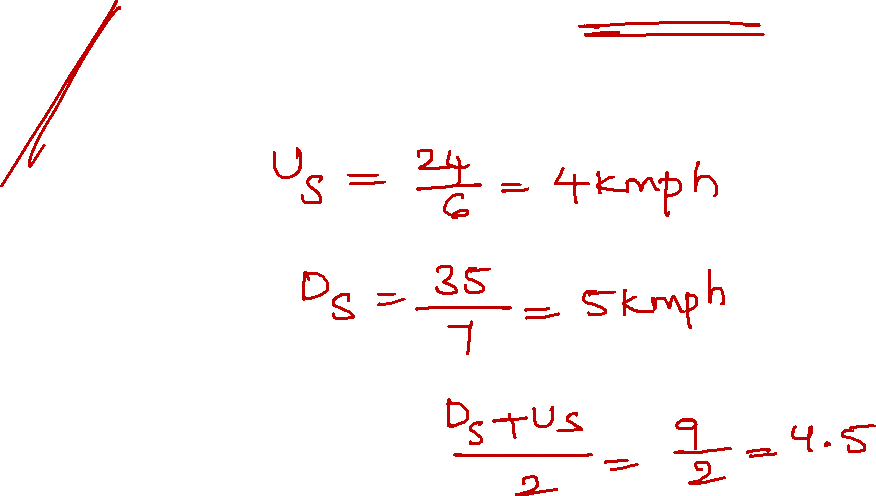 U_S = 24/6 = 4 kmph
D_S = 35/7 = 5 kmph
(D_S + U_S)/2 = 9/2 = 4.5